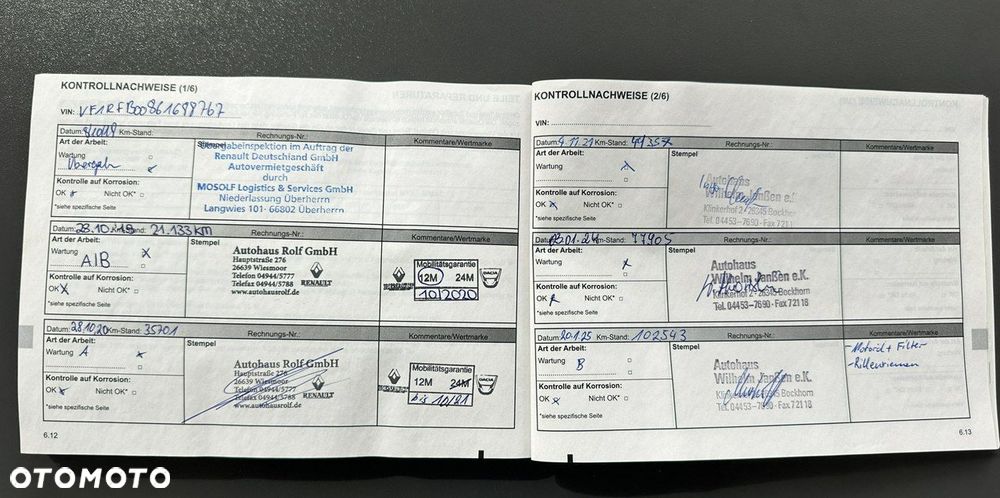 KONTROLLNACHWEISE (1/6)
VIN: VF1RFB00861698767
Datum: Km-Stand: Rechnungs-Nr.: Kommentare/Wertmarke
Art der Arbeit: Stempel
Wartung
Übergabe
Kontrolle auf Korrosion:
OK x Nicht OK*
*siehe spezifische Seite
Übergabeinspektion im Auftrag der
Renault Deutschland GmbH
Autovermietgeschäft
durch
MOSOLF Logistics & Services GmbH
Niederlassung Überherrn
Langwies 101· 66802 Überherrn
Datum: 23.10.19 Km-Stand: 21.133 KM Rechnungs-Nr.: Kommentare/Wertmarke
Art der Arbeit: Stempel
Wartung x
A/B
Kontrolle auf Korrosion:
OK x Nicht OK*
*siehe spezifische Seite
Autohaus Rolf GmbH
Hauptstraße 276
26639 Wiesmoor
Telefon 04944/5777
Telefax 04944/5788
www.autohausrolf.de
RENAULT
Mobilitätsgarantie
12M 24M
10/2020
DACIA
Datum: 28.10.20 Km-Stand: 35701 Rechnungs-Nr.: Kommentare/Wertmarke
Art der Arbeit: Stempel
Wartung A x
Kontrolle auf Korrosion:
OK x Nicht OK*
*siehe spezifische Seite
Autohaus Rolf GmbH
Hauptstraße 276
26639 Wiesmoor
Telefon 04944/5777
Telefax 04944/5788
www.autohausrolf.de
RENAULT
Mobilitätsgarantie
12M 24M
bis 10/21
DACIA
6.12
KONTROLLNACHWEISE (2/6)
VIN:
Datum: 9.11.21 Km-Stand: Rechnungs-Nr.: Kommentare/Wertmarke
Art der Arbeit: Stempel
Wartung x
Kontrolle auf Korrosion:
OK x Nicht OK*
*siehe spezifische Seite
Autohaus
Wilhelm Janßen e.K.
Klinkerhof 2 · 26345 Bockhorn
Tel. 04453-7690 · Fax 72118
Datum: Km-Stand: 77905 Rechnungs-Nr.: Kommentare/Wertmarke
Art der Arbeit: Stempel
Wartung x
Kontrolle auf Korrosion:
OK x Nicht OK*
*siehe spezifische Seite
Autohaus
Wilhelm Janßen e.K.
Klinkerhof 2 · 26345 Bockhorn
Tel. 04453-7690 · Fax 72118
Datum: 20.1.25 Km-Stand: 102543 Rechnungs-Nr.: Kommentare/Wertmarke
Art der Arbeit: Stempel
Wartung
B
Kontrolle auf Korrosion:
OK x Nicht OK*
*siehe spezifische Seite
Autohaus
Wilhelm Janßen e.K.
Klinkerhof 2 · 26345 Bockhorn
Tel. 04453-7690 · Fax 72118
- Motoröl + Filter
- Rillenriemen
6.13
OTOMOTO